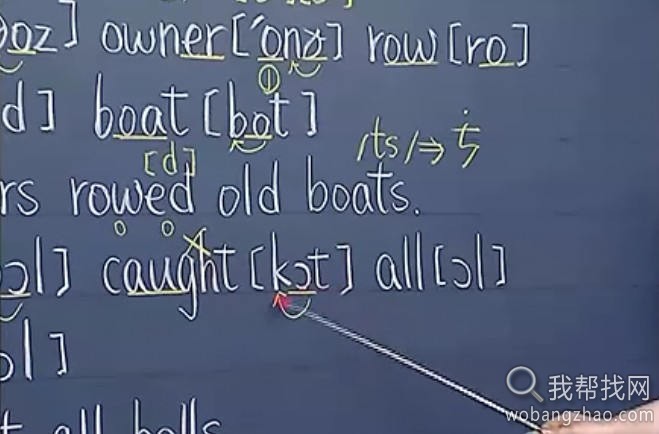 oz] owner [ˈonɚ] row [ro]
①
d] boat [bot]
[d] /ts/⇒ ㄘ
rs rowed old boats.
ɔl] caught [kɔt] all [ɔl]
ɔl]
all balls
我帮找网
wobangzhao.com